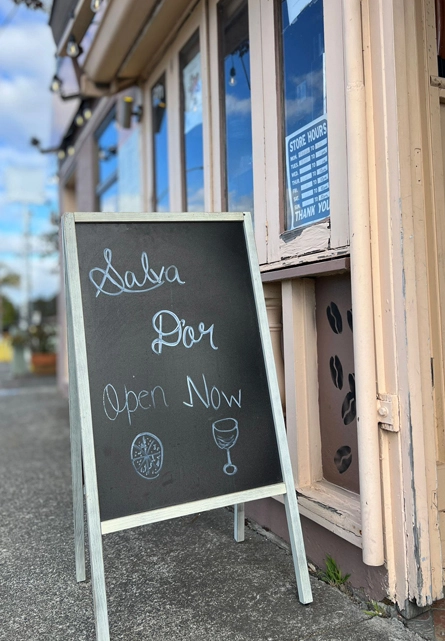 Salva
D'or
Open Now
STORE HOURS
THANK YOU